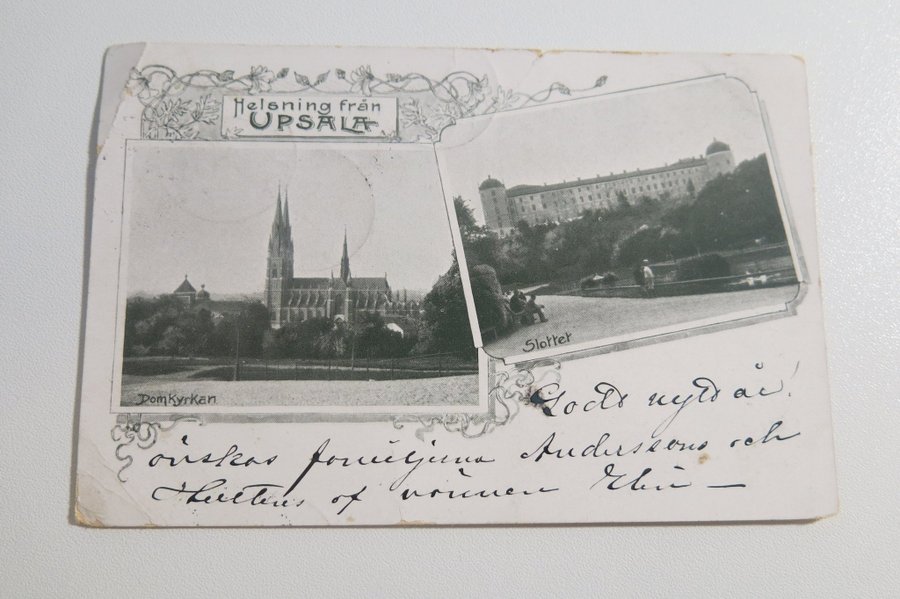 Helsning från
UPSALA
Domkyrkan
Slottet
Godt nytt år!
önskas familjerna Anderssons och
af vännen Elin —